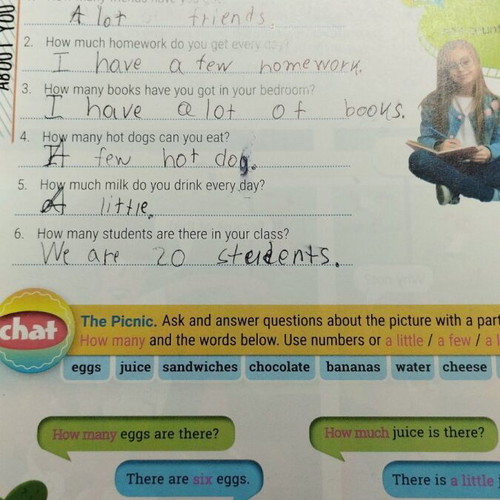 ABOUT YOU
A lot friends.
2. How much homework do you get every day?
I have a few homework.
3. How many books have you got in your bedroom?
I have a lot of books.
4. How many hot dogs can you eat?
A few hot dog.
5. How much milk do you drink every day?
A little.
6. How many students are there in your class?
We are 20 students.
chat
The Picnic. Ask and answer questions about the picture with a part
How many and the words below. Use numbers or a little / a few / a l
eggs juice sandwiches chocolate bananas water cheese
How many eggs are there?
How much juice is there?
There are six eggs.
There is a little